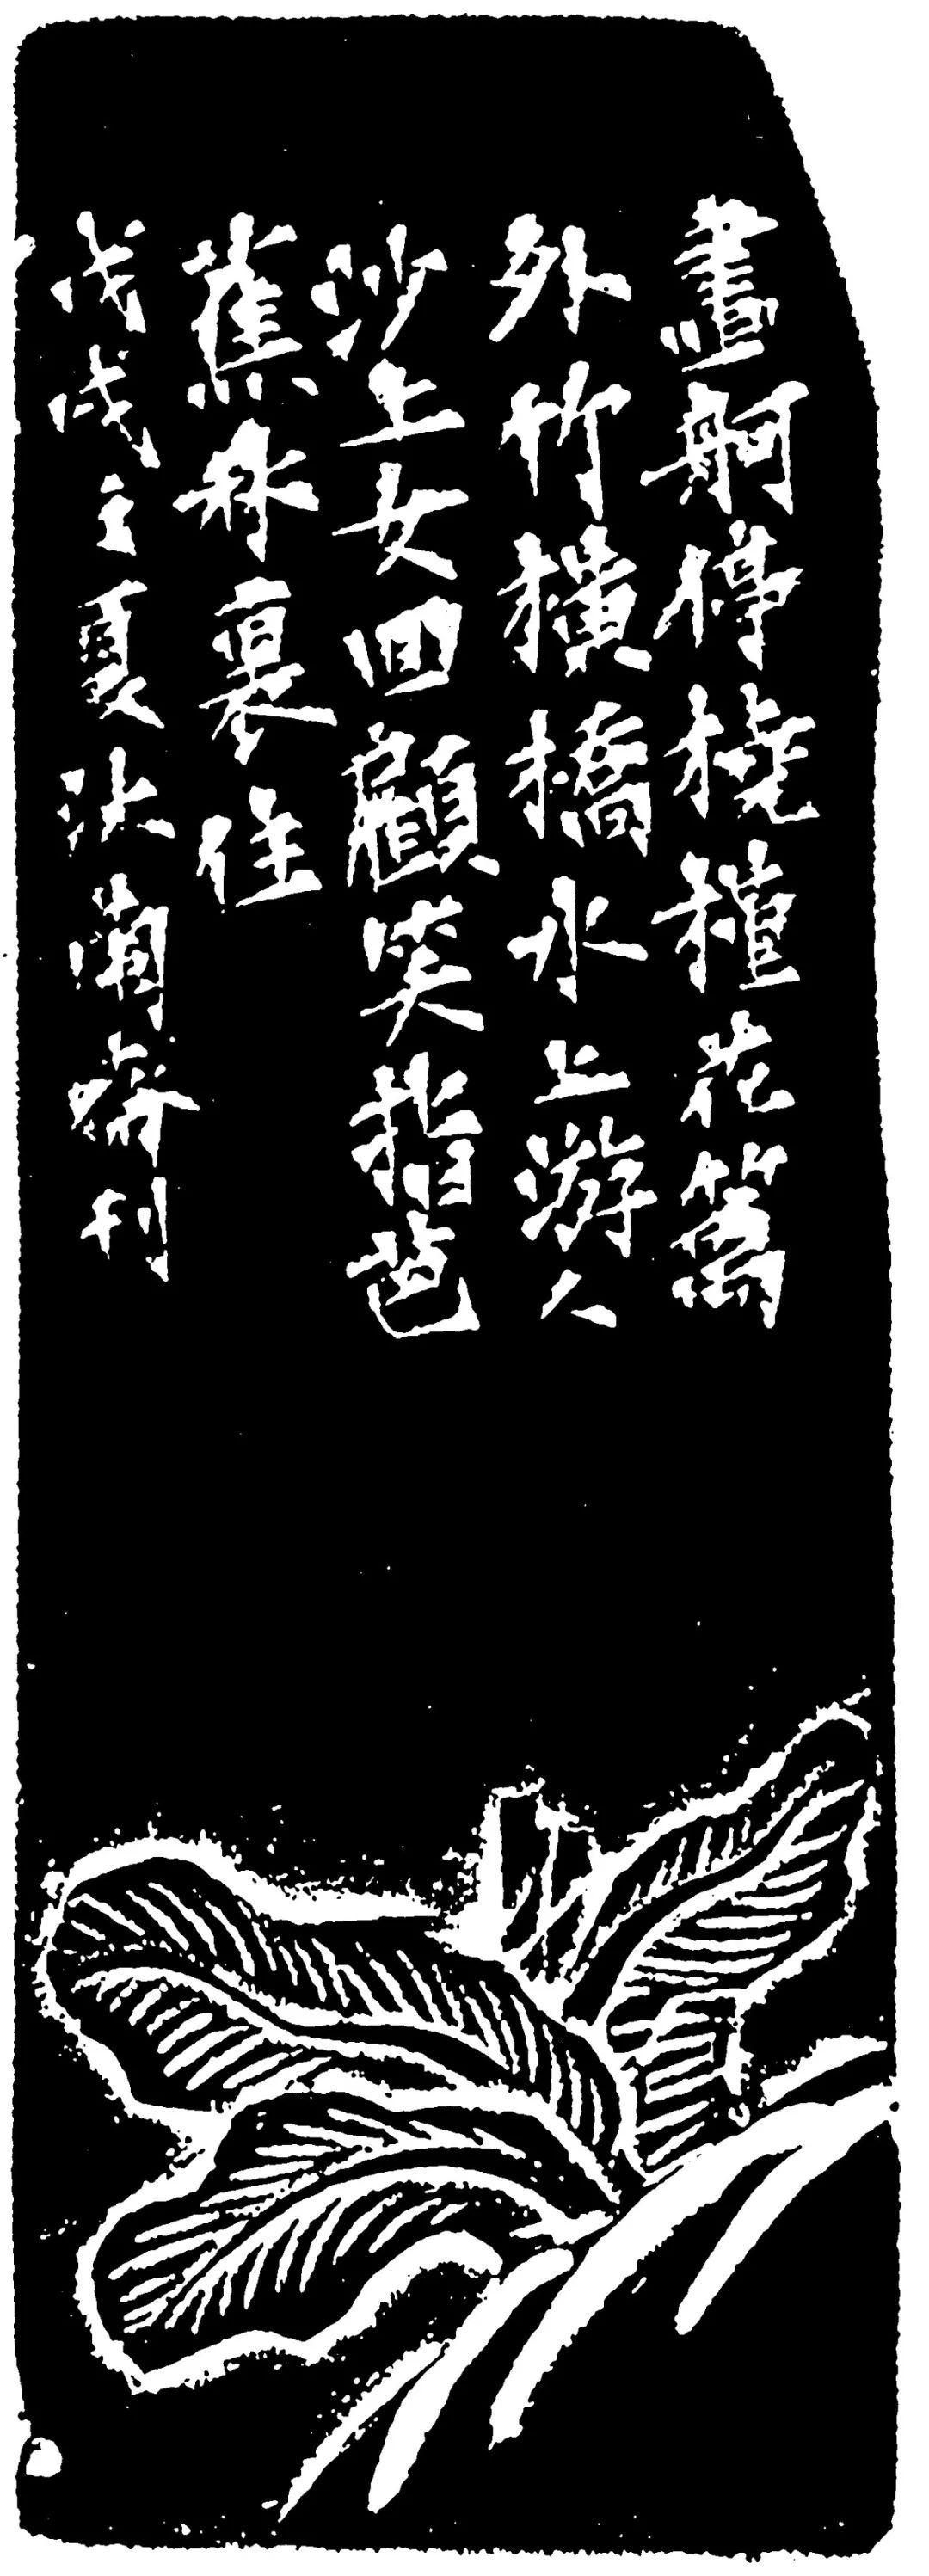 畫舸停橈槿花籬
外竹橫橋水上游人
沙上女回顧笑指芭
蕉林裏住
戊戌立夏沐蘭齋刊